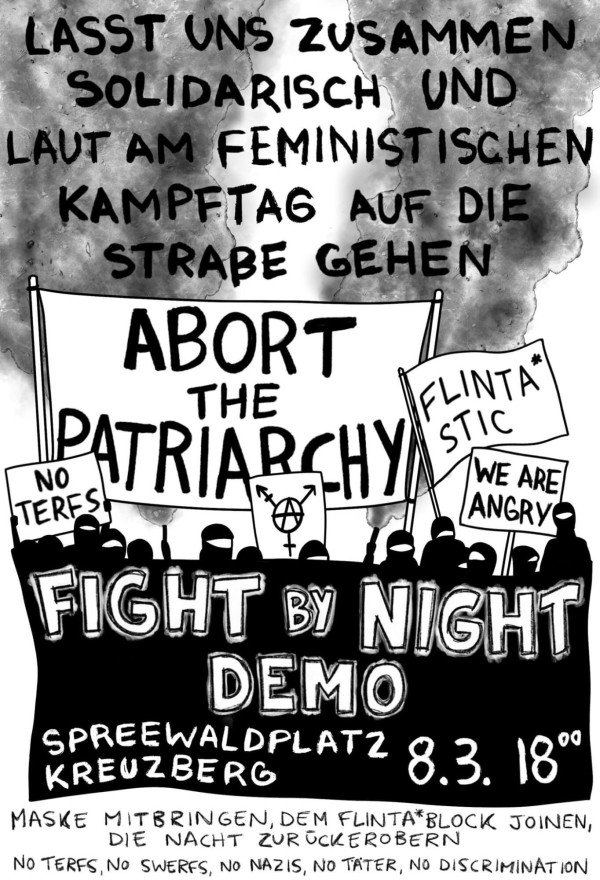 LASST UNS ZUSAMMEN
SOLIDARISCH UND
LAUT AM FEMINISTISCHEN
KAMPFTAG AUF DIE
STRAßE GEHEN
ABORT
THE
PATRIARCHY
FLINTA*
STIC
NO
TERFS
WE ARE
ANGRY
A
FIGHT BY NIGHT
DEMO
SPREEWALDPLATZ
KREUZBERG
8.3. 18⁰⁰
MASKE MITBRINGEN, DEM FLINTA*BLOCK JOINEN,
DIE NACHT ZURÜCKEROBERN
NO TERFS, NO SWERFS, NO NAZIS, NO TÄTER, NO DISCRIMINATION